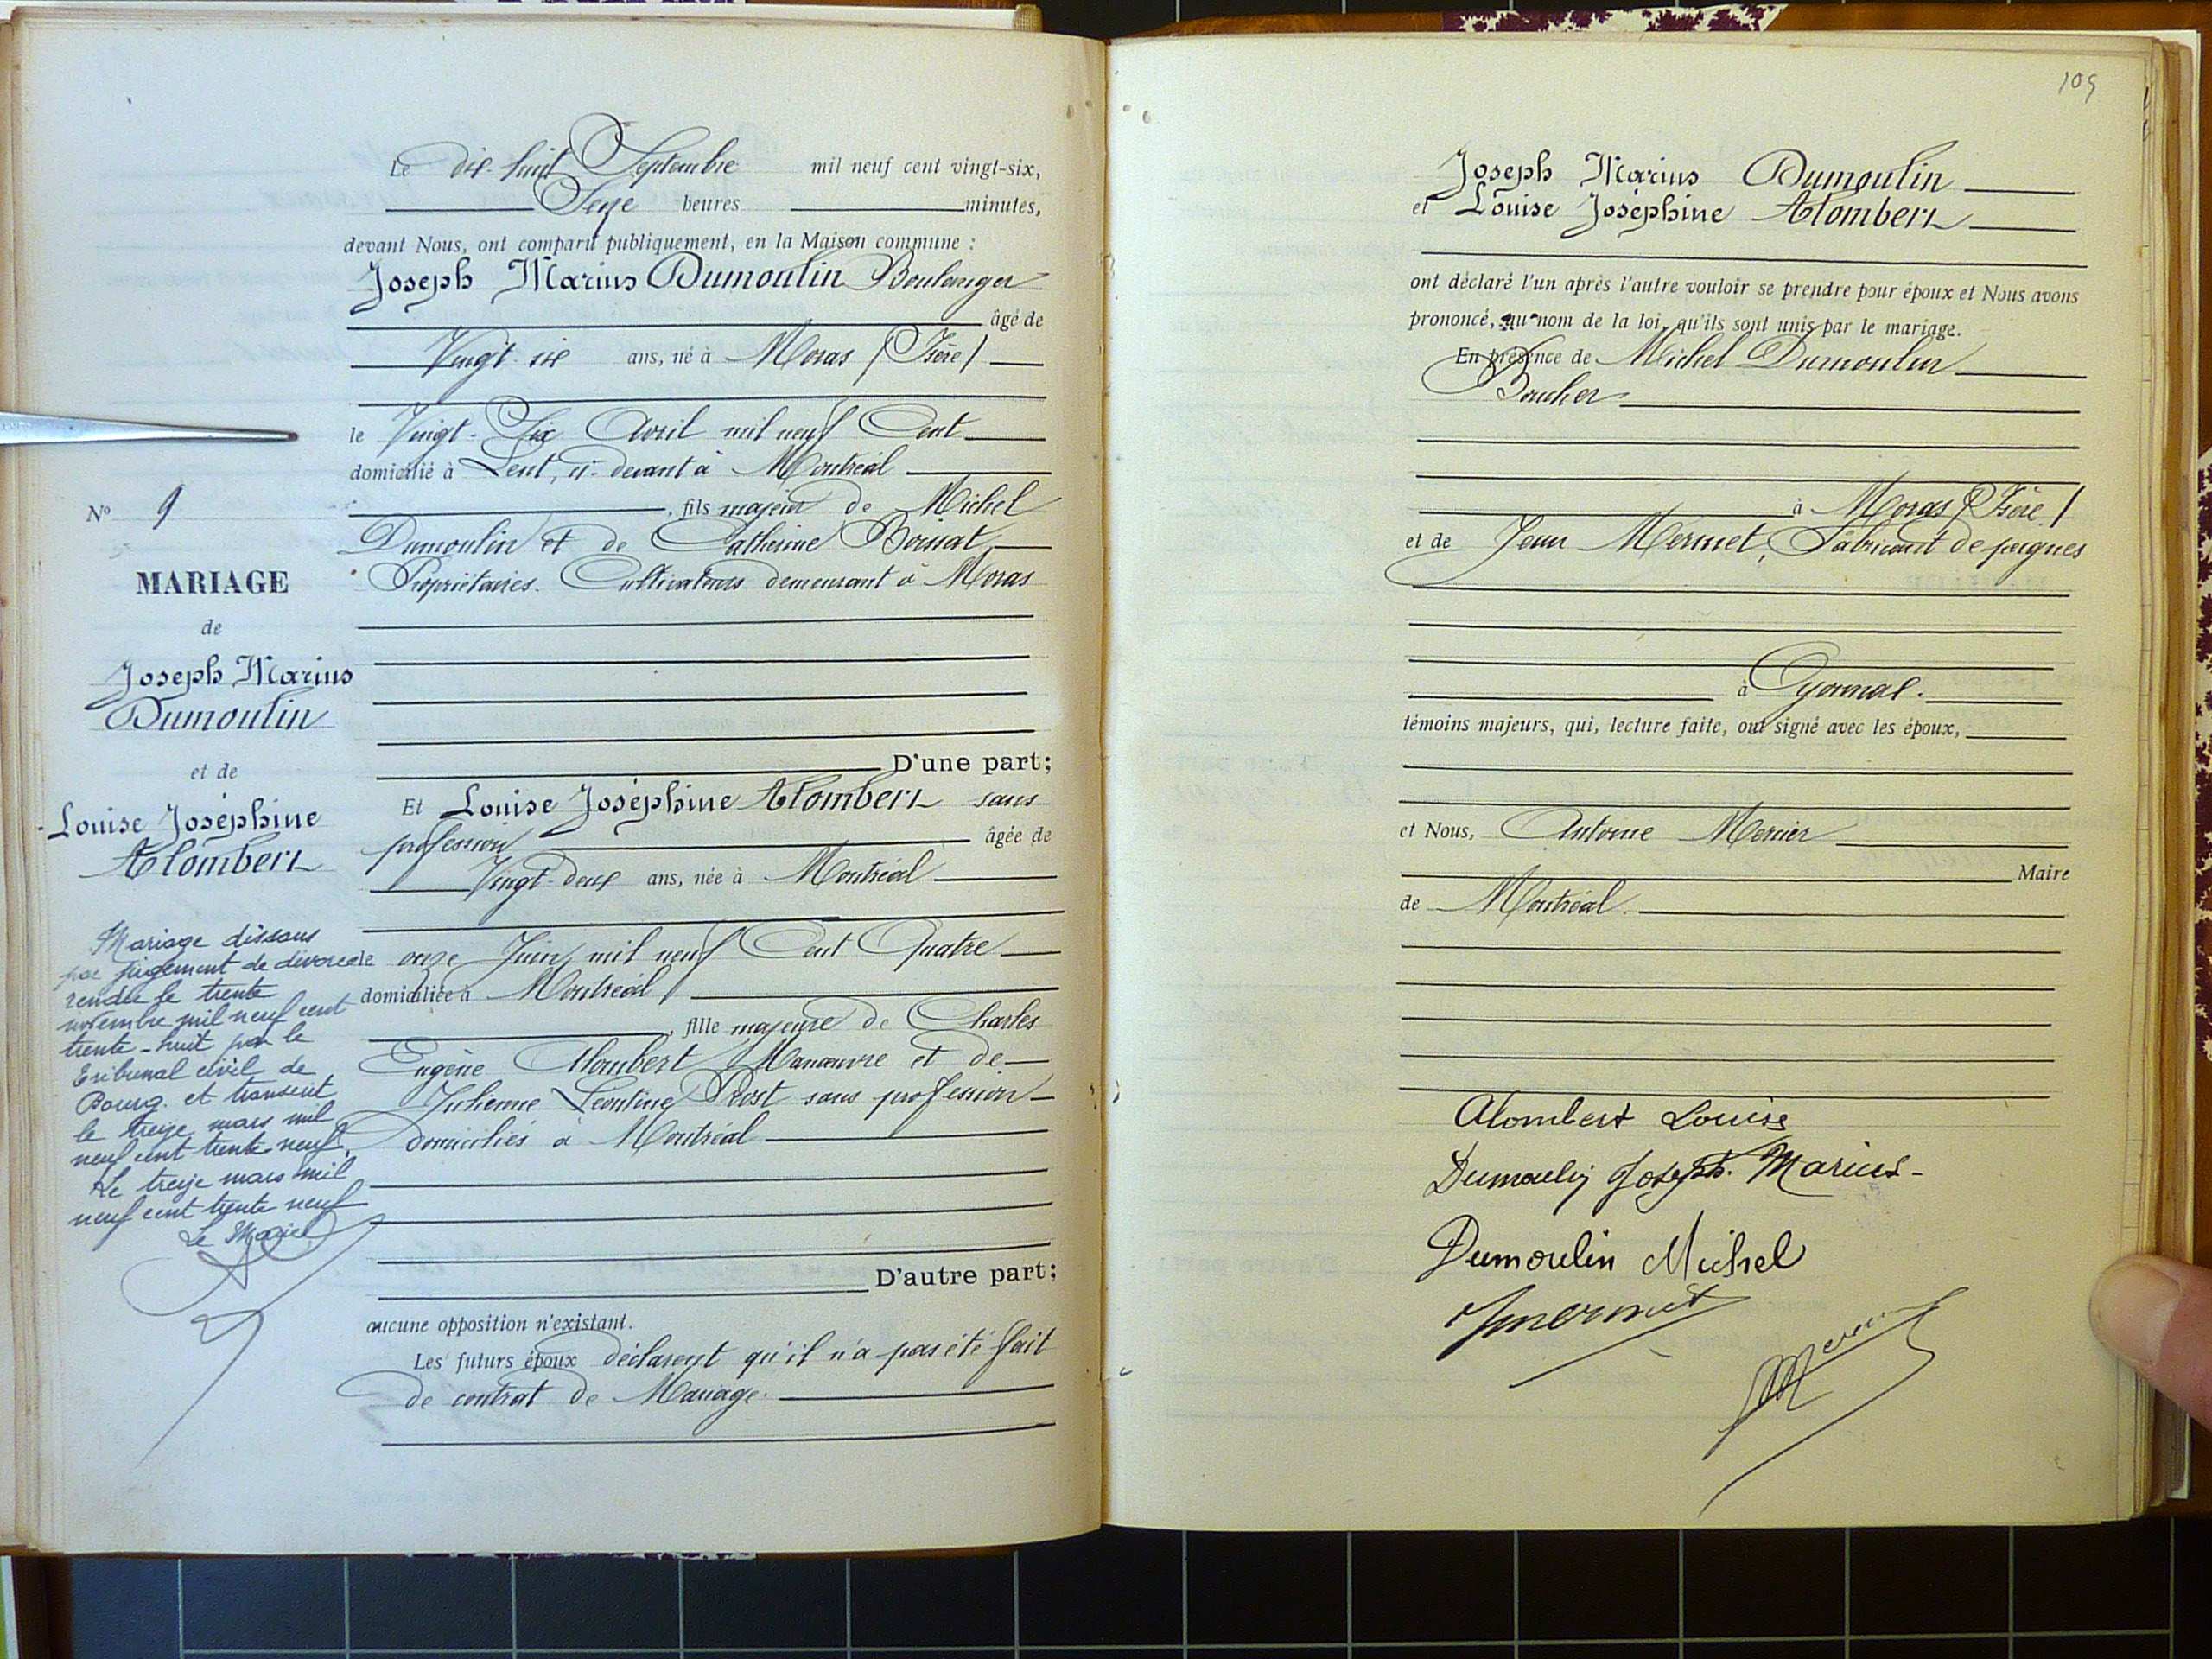 Le dix-huit Septembre mil neuf cent vingt-six,
Seize heures minutes,
devant Nous, ont comparu publiquement, en la Maison commune :
Joseph Marius Dumoulin Boulanger
âgé de
Vingt-six ans, né à Moras (Isère)
le Vingt-Six Avril mil neuf Cent
domicilié à Lent, ci-devant à Montréal
, fils majeur de Michel
Dumoulin et de Catherine
Propriétaires Cultivateurs demeurant à Moras
D'une part;
Et Louise Joséphine Alombert sans
profession âgée de
Vingt-deux ans, née à Montréal
le onze Juin mil neuf Cent Quatre
domiciliée à Montréal
, fille majeure de Charles
Eugène Alombert Manœuvre et de
Julienne Léontine Prost sans profession
domiciliés à Montréal
D'autre part;
aucune opposition n'existant.
Les futurs époux déclarent qu'il n'a pas été fait
de contrat de Mariage.
No 9
MARIAGE
de
Joseph Marius
Dumoulin
et de
Louise Joséphine
Alombert
Mariage dissous
par jugement de divorce
rendu le trente
novembre mil neuf cent
trente-huit par le
Tribunal civil de
Bourg. et transcrit
le treize mars mil
neuf cent trente neuf.
Le treize mars mil
neuf cent trente neuf
Le Maire
109
Joseph Marius Dumoulin
et Louise Joséphine Alombert
ont déclaré l'un après l'autre vouloir se prendre pour époux et Nous avons
prononcé, au nom de la loi, qu'ils sont unis par le mariage.
En présence de Michel Dumoulin
Boucher
à Moras (Isère)
et de Jean Mermet, Fabricant de peignes
à Oyonnax.
témoins majeurs, qui, lecture faite, ont signé avec les époux,
et Nous, Antoine Mercier
Maire
de Montréal
Alombert Louise
Dumoulin Joseph. Marius
Dumoulin Michel
Jmermet